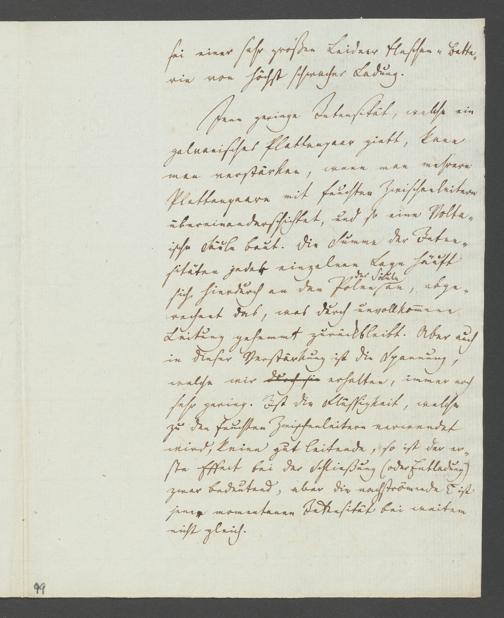 bei einer sehr großen Leidner Flaschen-Batte-
rie von höchst schwacher Ladung.
Jene geringe Intensität, welche ein
galvanisches Plattenpaar giebt, kann
man verstärken, wenn man mehrere
Plattenpaare mit feuchten Zwischenleitern
übereinanderschichtet, und so eine Volta-
ische Säule baut. Die Summe der Inten-
sitäten jeder einzelnen Lage häuft
sich hierdurch an den Polen der Säule an, abge-
rechnet das, was durch unvollkommne
Leitung gehemmt zurückbleibt. Aber auch
in dieser Verstärkung ist die Spannung,
welche wir erhalten, immer noch
sehr gering. Ist die Flüssigkeit, welche
zu den feuchten Zwischenleitern verwendet
wird, keine gut leitende, so ist der er-
ste Effect bei der Schließung (oder Entladung)
zwar bedeutend, aber die nachströmende E ist
jener momentanen Intensität bei weitem
nicht gleich.
99